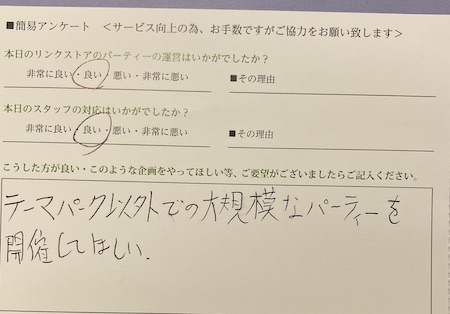 ■簡易アンケート <サービス向上の為、お手数ですがご協力をお願い致します>
本日のリンクストアのパーティーの運営はいかがでしたか？
非常に良い・良い・悪い・非常に悪い ■その理由
本日のスタッフの対応はいかがでしたか？
非常に良い・良い・悪い・非常に悪い ■その理由
こうした方が良い・このような企画をやってほしい等、ご要望がございましたらご記入ください。
テーマパークレストランでの大規模なパーティーを
開催してほしい.